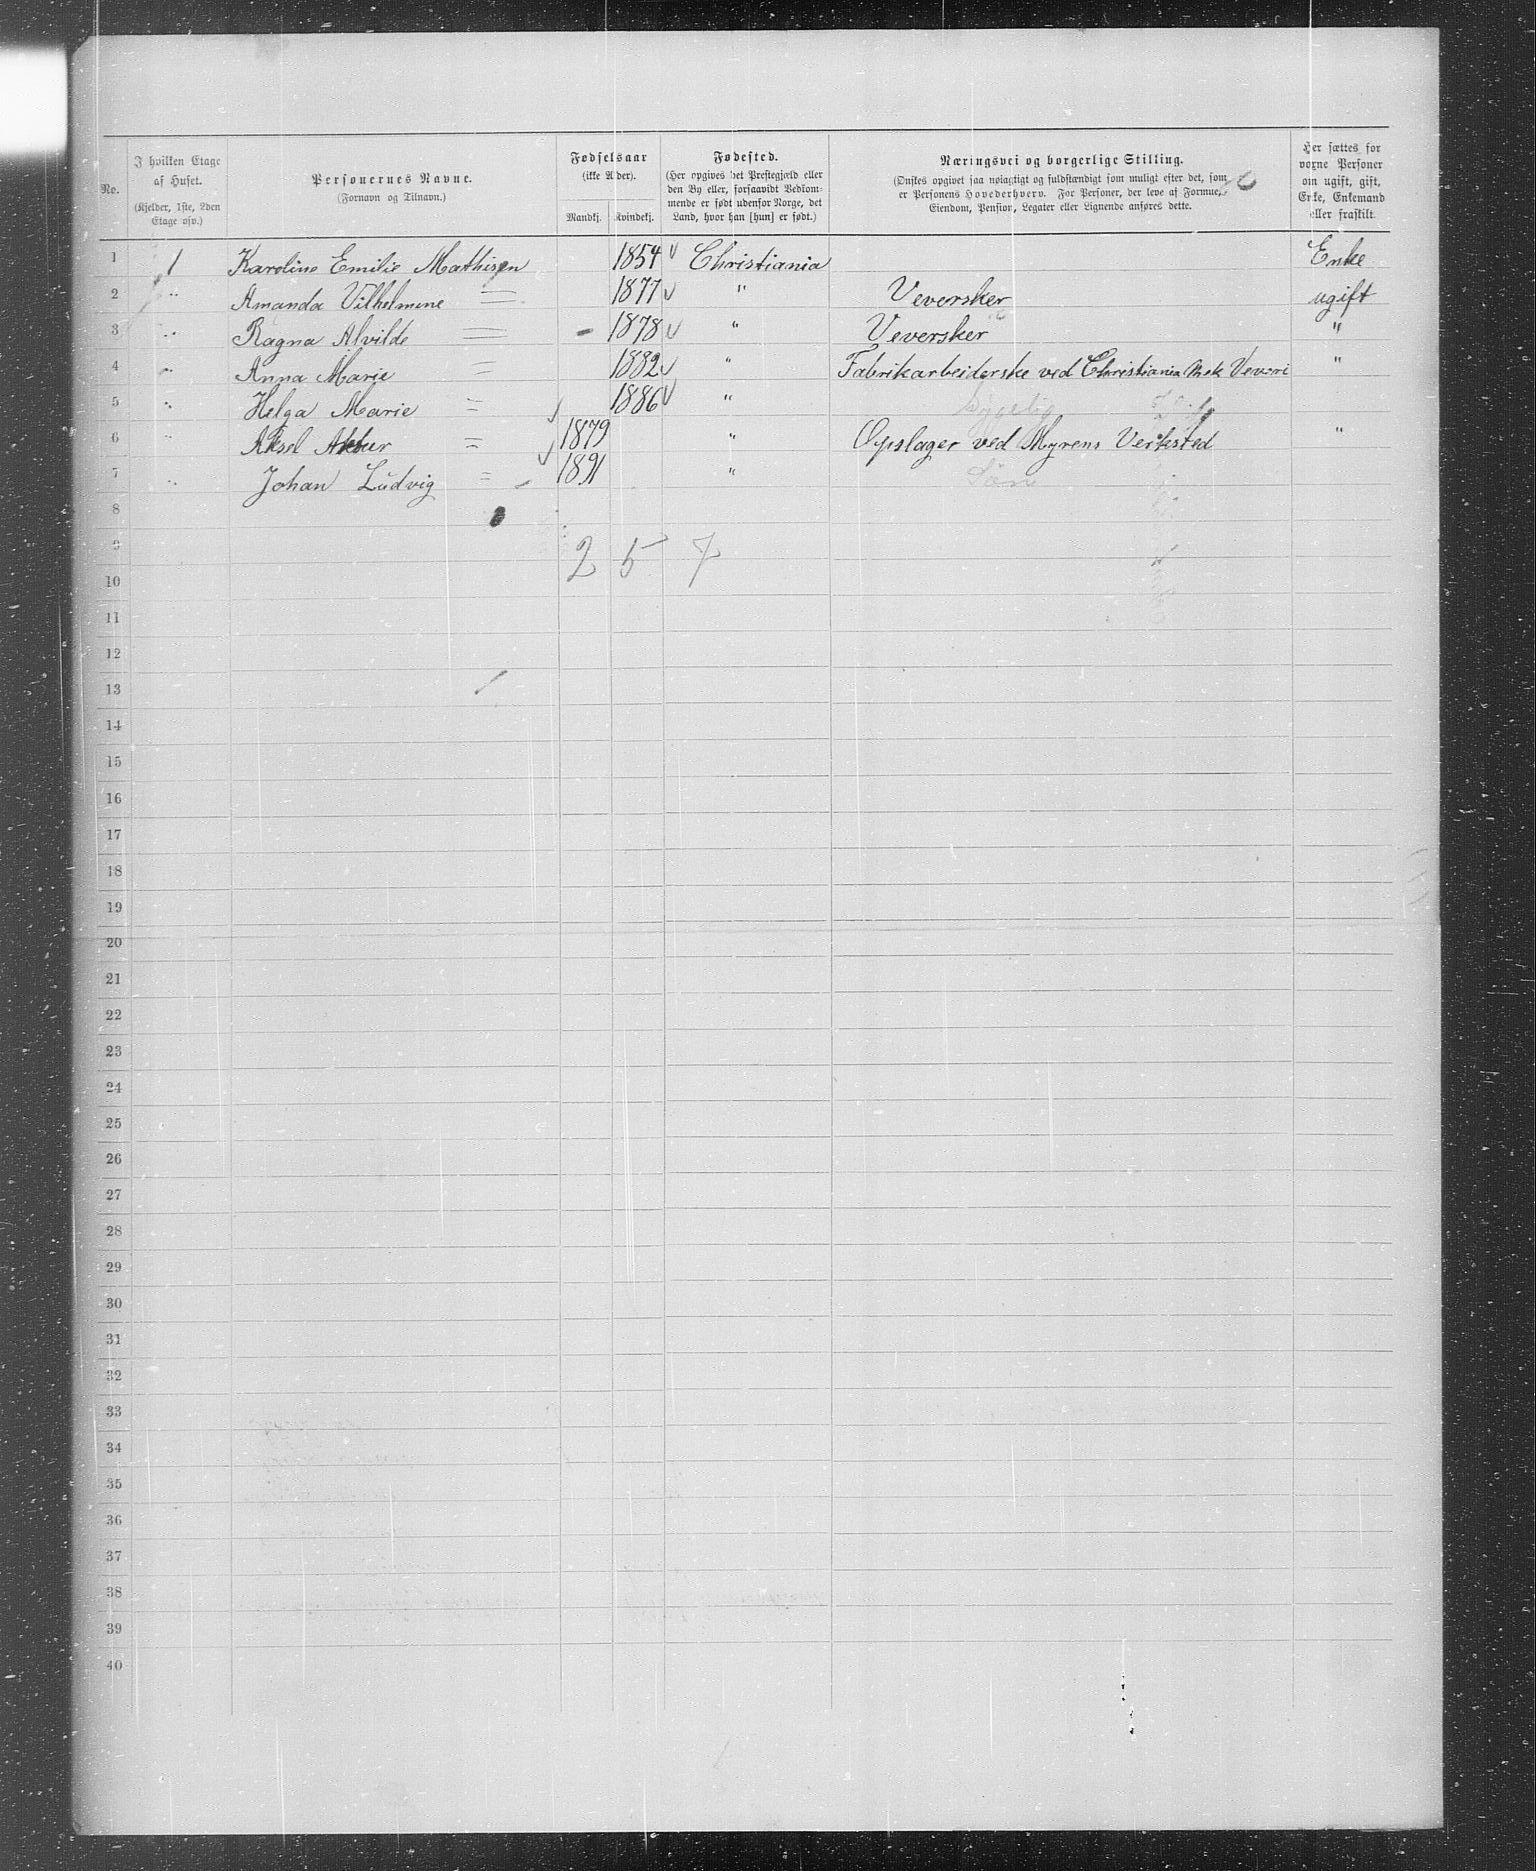 No.
I hvilken Etage af Huset. (Kjelder, 1ste, 2den Etage osv.)
Personernes Navne. (Fornavn og Tilnavn.)
Fødselsaar (ikke Alder).
Mandkj. Kvindekj.
Fødested. (Her opgives det Prestegjæld eller den By eller, forsaavidt Vedkommende er født udenfor Norge, det Land, hvor han [hun] er født.)
Næringsvei og borgerlige Stilling. (Ønskes opgivet saa nøiagtigt og fuldstændigt som muligt efter det, som er Personens Hovederhverv. For Personer, der leve af Formue, Eiendom, Pension, Legater eller Lignende anføres dette.
Her sættes for voxne Personer om ugift, gift, Enke, Enkemand eller fraskilt.
1 1 Karoline Emilie Mathisen 1854 Christiania Enke
2 " Amanda Vilhelmine = 1877 " Veversker ugift
3 " Ragna Alvilde = - 1878 " Veversker "
4 " Anna Marie = 1882 " Fabrikarbeiderske ved Christiania Mek Veveri "
5 " Helga Marie = 1886 " Sygelig
6 " Aksel Aktur = 1879 " Opslager ved Myrens Verksted "
7 " Johan Ludvig = 1891 " Søn
8
9 2 5 7
10
11
12
13
14
15
16
17
18
19
20
21
22
23
24
25
26
27
28
29
30
31
32
33
34
35
36
37
38
39
40